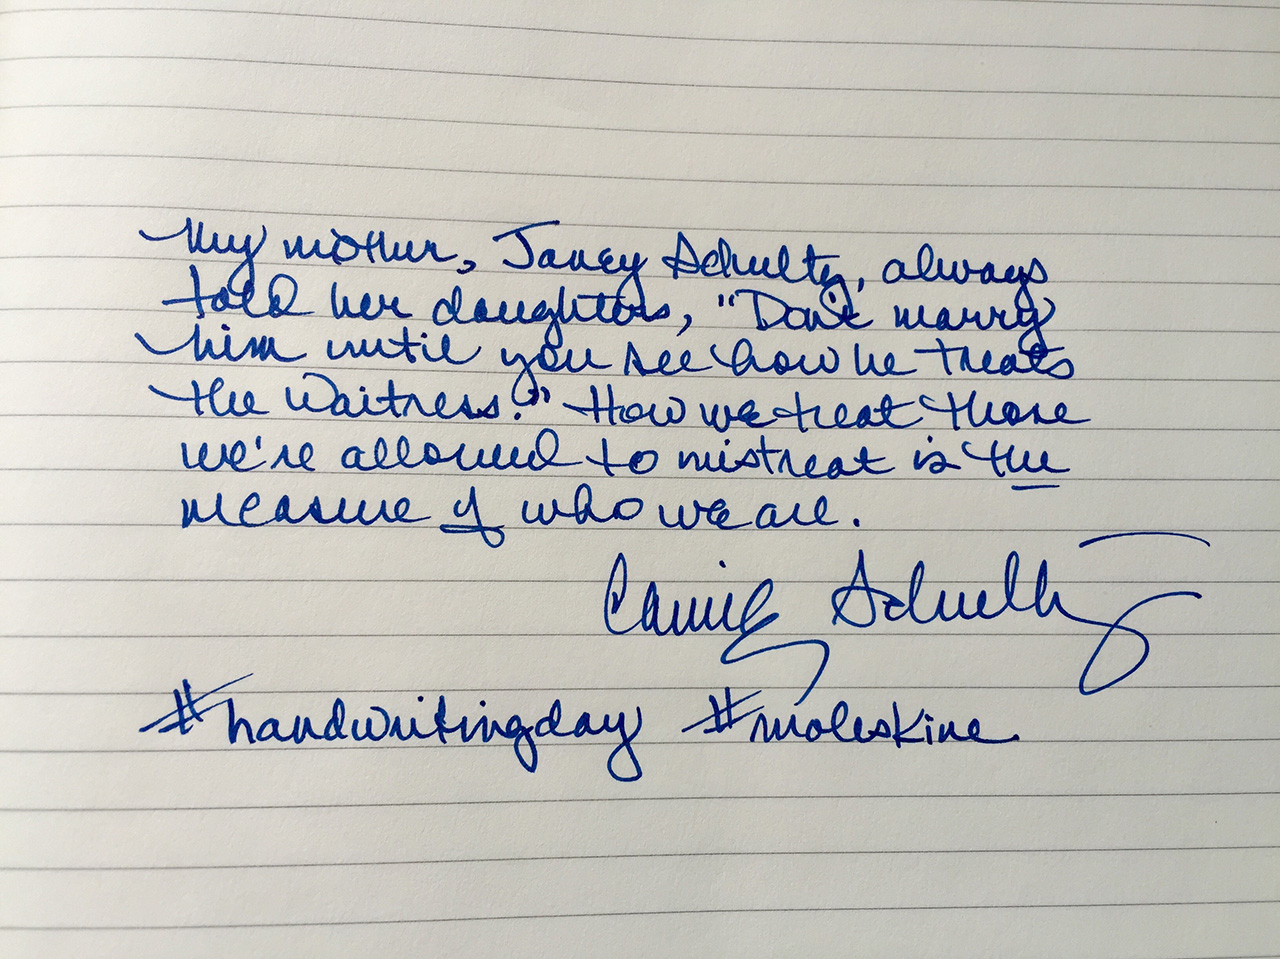 My mother, Janey Schultz, always
told her daughters, "Don't marry
him until you see how he treats
the waitress." How we treat those
we're allowed to mistreat is the
measure of who we are.
Connie Schultz
#handwritingday #moleskine